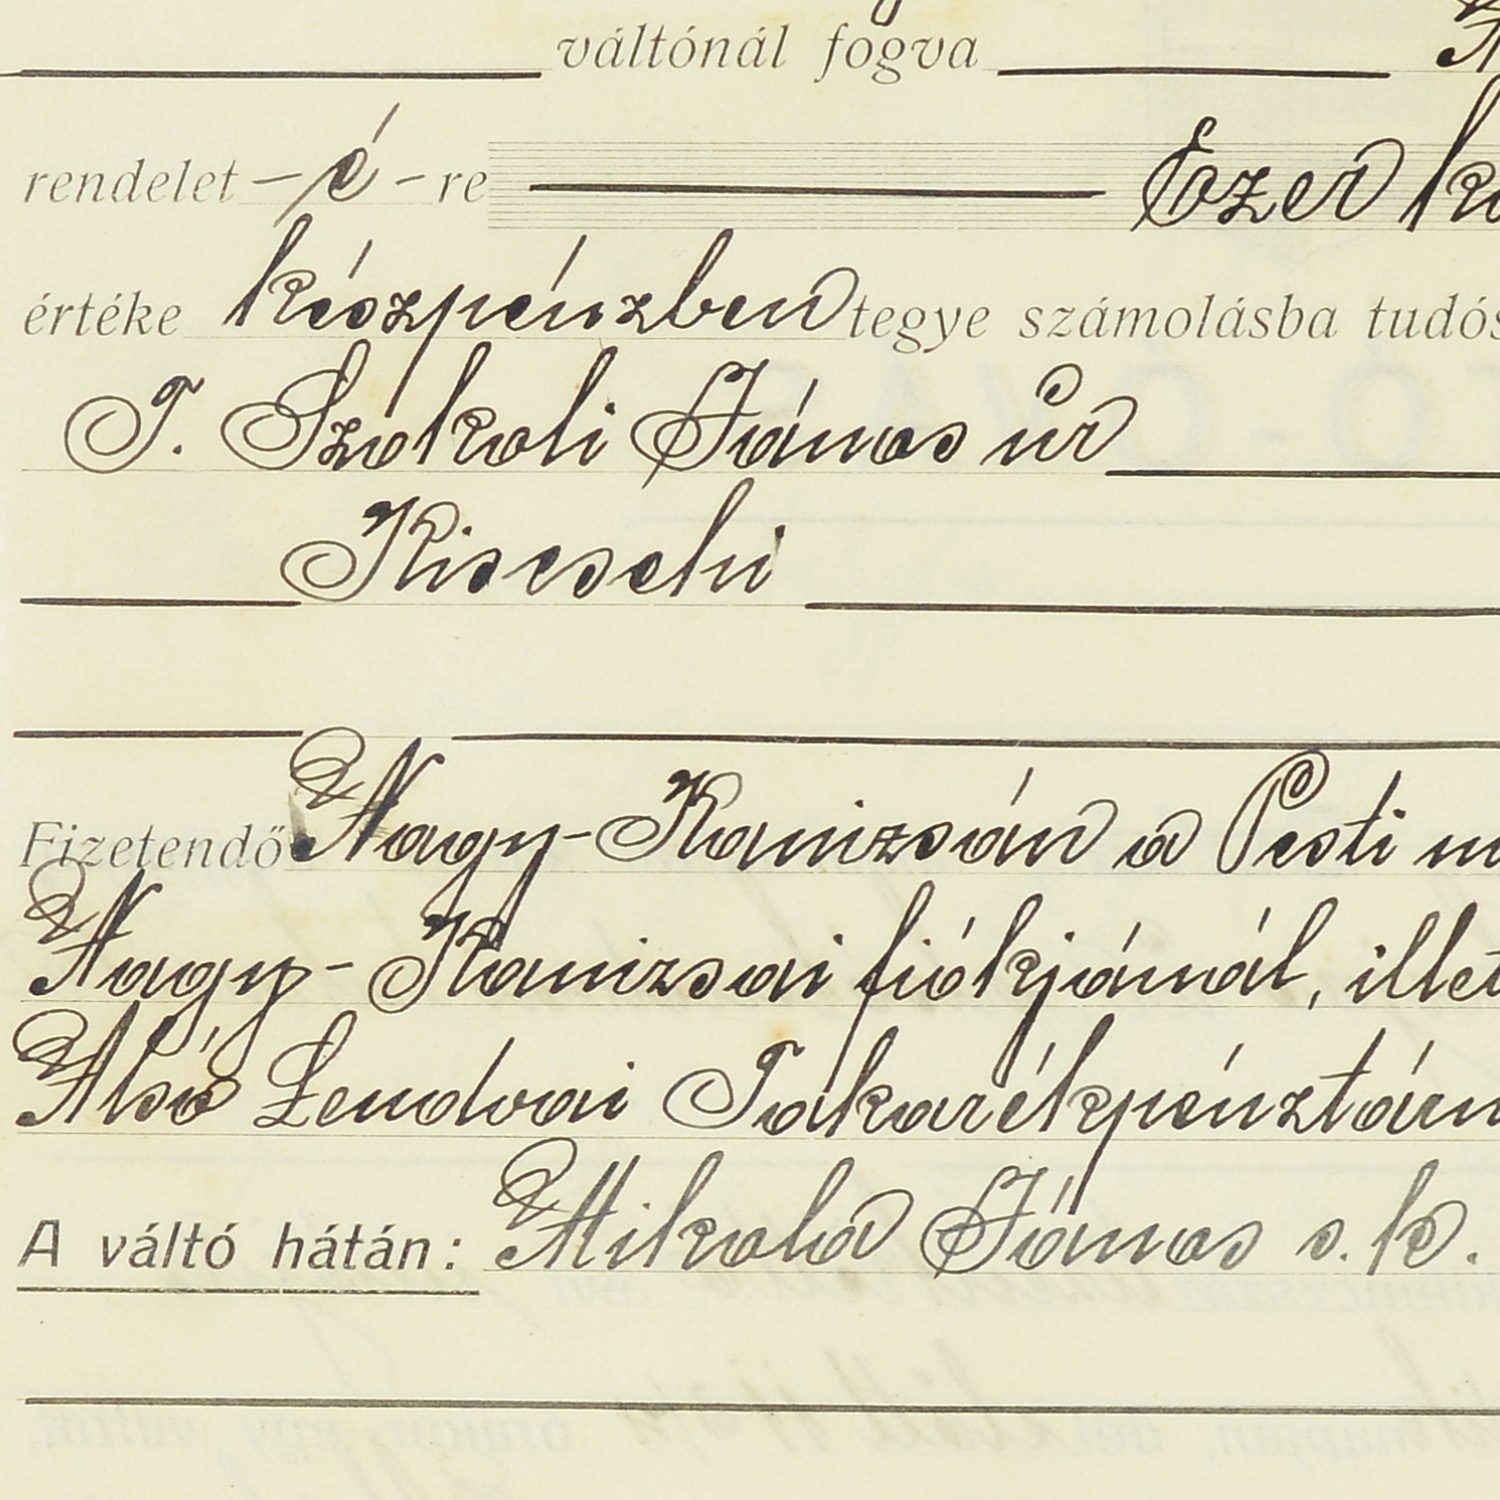 váltónál fogva
rendelet - é - re Ezer
értéke készpénzben tegye számolásba
T. Szókoli János úr
Kiscsehi
Fizetendő Nagy-Kanizsán a Pesti
Nagy-Kanizsai fiókjánál,
Alsó Lendvai Takarékpénztárn
A váltó hátán: Mikola János s. k.